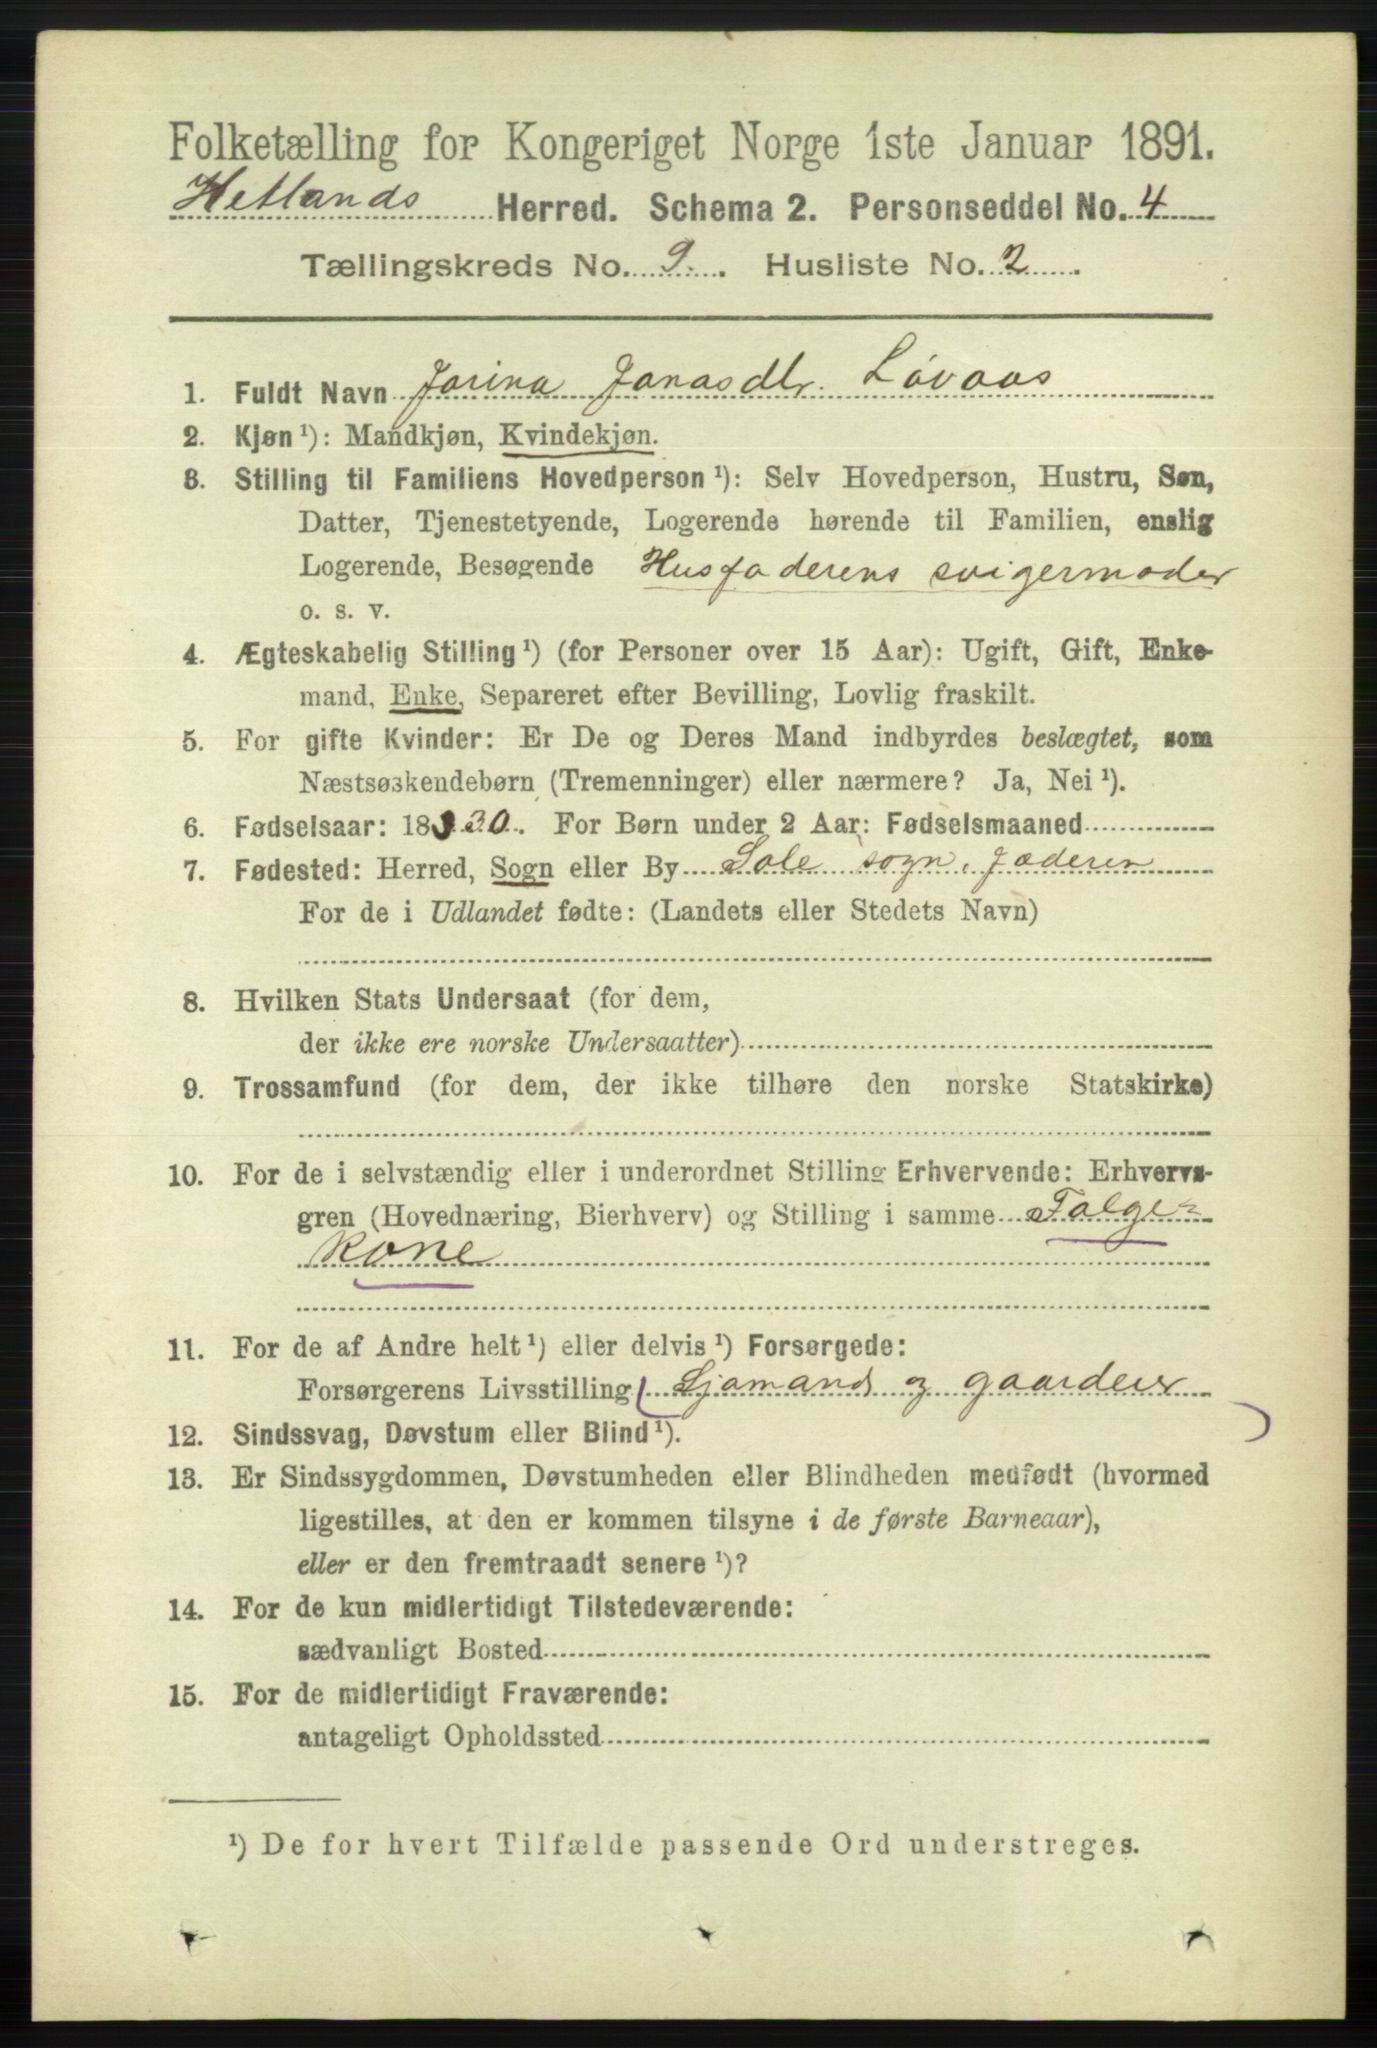 Folketælling for Kongeriget Norge 1ste Januar 1891.
Hetlands Herred. Schema 2. Personseddel No. 4
Tællingskreds No. 9. Husliste No. 2
1. Fuldt Navn Jorina Jonasdtr. Løvaas
2. Kjøn ¹): Mandkjøn, Kvindekjøn.
3. Stilling til Familiens Hovedperson ¹): Selv Hovedperson, Hustru, Søn,
Datter, Tjenestetyende, Logerende hørende til Familien, enslig
Logerende, Besøgende Husfaderens svigermoder
o. s. v.
4. Ægteskabelig Stilling ¹) (for Personer over 15 Aar): Ugift, Gift, Enke-
mand, Enke, Separeret efter Bevilling, Lovlig fraskilt.
5. For gifte Kvinder: Er De og Deres Mand indbyrdes beslægtet, som
Næstsøskendebørn (Tremenninger) eller nærmere? Ja, Nei ¹).
6. Fødselsaar: 1830. For Børn under 2 Aar: Fødselsmaaned
7. Fødested: Herred, Sogn eller By Sole sogn, Jæderen
For de i Udlandet fødte: (Landets eller Stedets Navn)
8. Hvilken Stats Undersaat (for dem,
der ikke ere norske Undersaatter)
9. Trossamfund (for dem, der ikke tilhøre den norske Statskirke)
10. For de i selvstændig eller i underordnet Stilling Erhvervende: Erhvervs-
gren (Hovednæring, Bierhverv) og Stilling i samme Folge-
kone
11. For de af Andre helt ¹) eller delvis ¹) Forsørgede:
Forsørgerens Livsstilling (Sjømand og gaardeier
)
12. Sindssvag, Døvstum eller Blind ¹).
13. Er Sindssygdommen, Døvstumheden eller Blindheden medfødt (hvormed
ligestilles, at den er kommen tilsyne i de første Barneaar),
eller er den fremtraadt senere ¹)?
14. For de kun midlertidigt Tilstedeværende:
sædvanligt Bosted
15. For de midlertidigt Fraværende:
antageligt Opholdssted
¹) De for hvert Tilfælde passende Ord understreges.